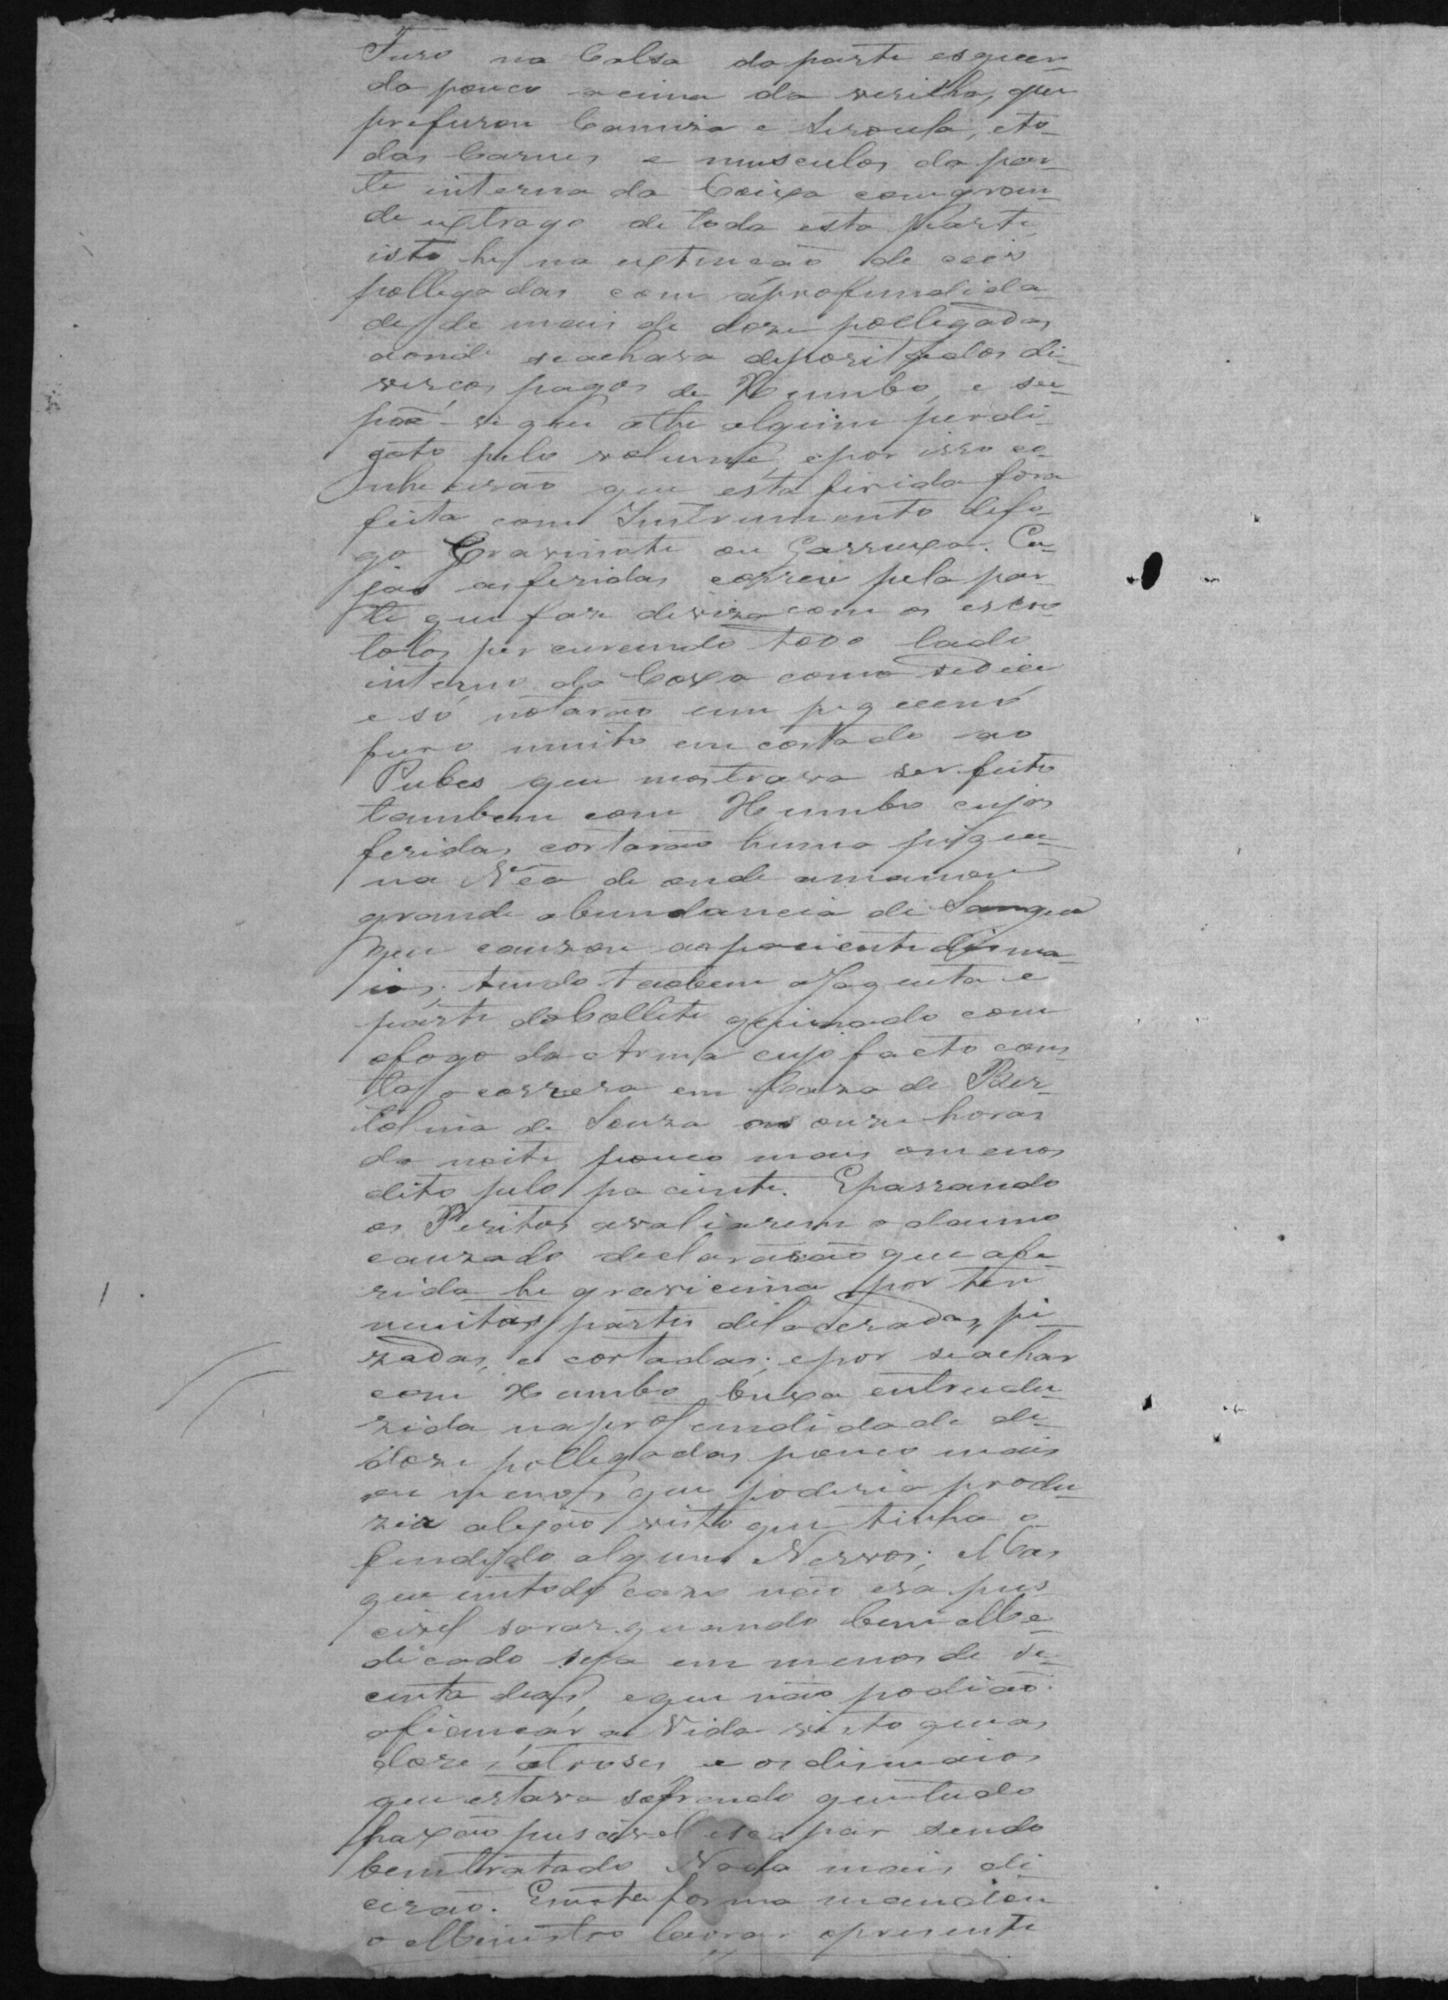 Furo na Calsa da parte esquer-
da pouco acima da verilha, que
prefurou Camiza e Seroula, eto-
das Carnes e musculos da par-
te interna da Coixa com gran-
de extrago de toda esta parte,
isto he na extencão de ceis
pollegadas com aprofundida-
de de mais de doze pollegadas
aonde seachava depozitados di-
verços bagos de Xumbo, e su-
põe-se que athe alguim perdi-
goto pelo volume, epor isso co-
nhecerão que esta firida fora
feita com Instrumento defo-
go Cravinote ou Garruxa. Cu-
jas asferidas correu pela par-
te que faz diviza com os escro-
tolos percurendo todo lado
interno da Coxa como sedice
e só notarão um pequeno
furo muito encostado ao
Pubes que mostrava ser feito
tambem com Xumbo cujas
feridas cortarão huma peque-
na Vêa de onde amanou
grande abundancia de Sangue
que cauzou aopaciente disma-
ios; tendo tãobem aJaqueta e
parte doCollete queimado com
ofogo da Arma cujo facto cons-
ta o correra em Caza de Ber-
tolina de Souza as onze horas
da noite pouco mais omenos
dito pelo paciente. Epassando
os Peritos avaliarem o damno
cauzado declararão que afe-
rida he gravicima por ter
muitas partes dilaceradas, pi-
zadas, e cortadas; epor seachar
com Xumbo buxa entrudu-
zida naprofundidade de
doze pollegadas pouco mais
ou menos, que poderia produ-
zir alejão visto que tinha o
fendido alguns Nervos; Mas
que emtodo cazo não era pus-
civel sarar quando bem Me-
dicado seja em menos de se-
centa dias, eque não podião
afiançar a Vida visto que as
dores atroses e os dismaios
que estava sofrendo que tudo
haxão puscivel escapar sendo
bemtratado Nada mais di-
cerão. Enesta forma mandou
o Ministro lavrar opresente